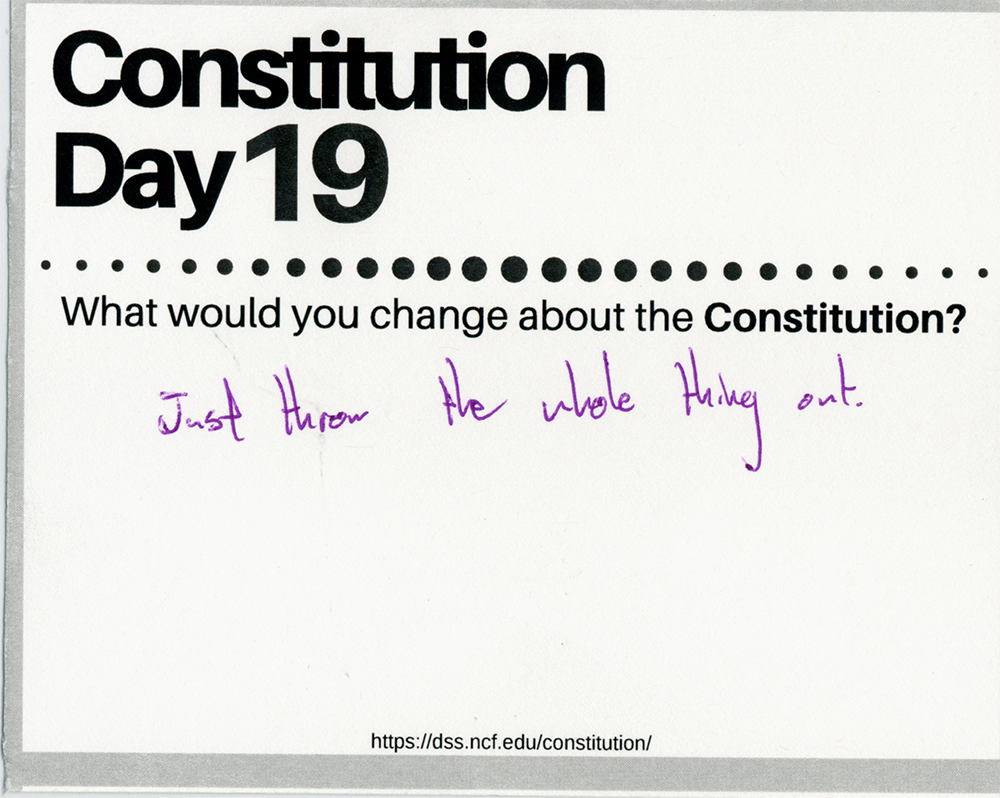 Constitution
Day 19
What would you change about the Constitution?
Just throw the whole thing out.
https://dss.ncf.edu/constitution/